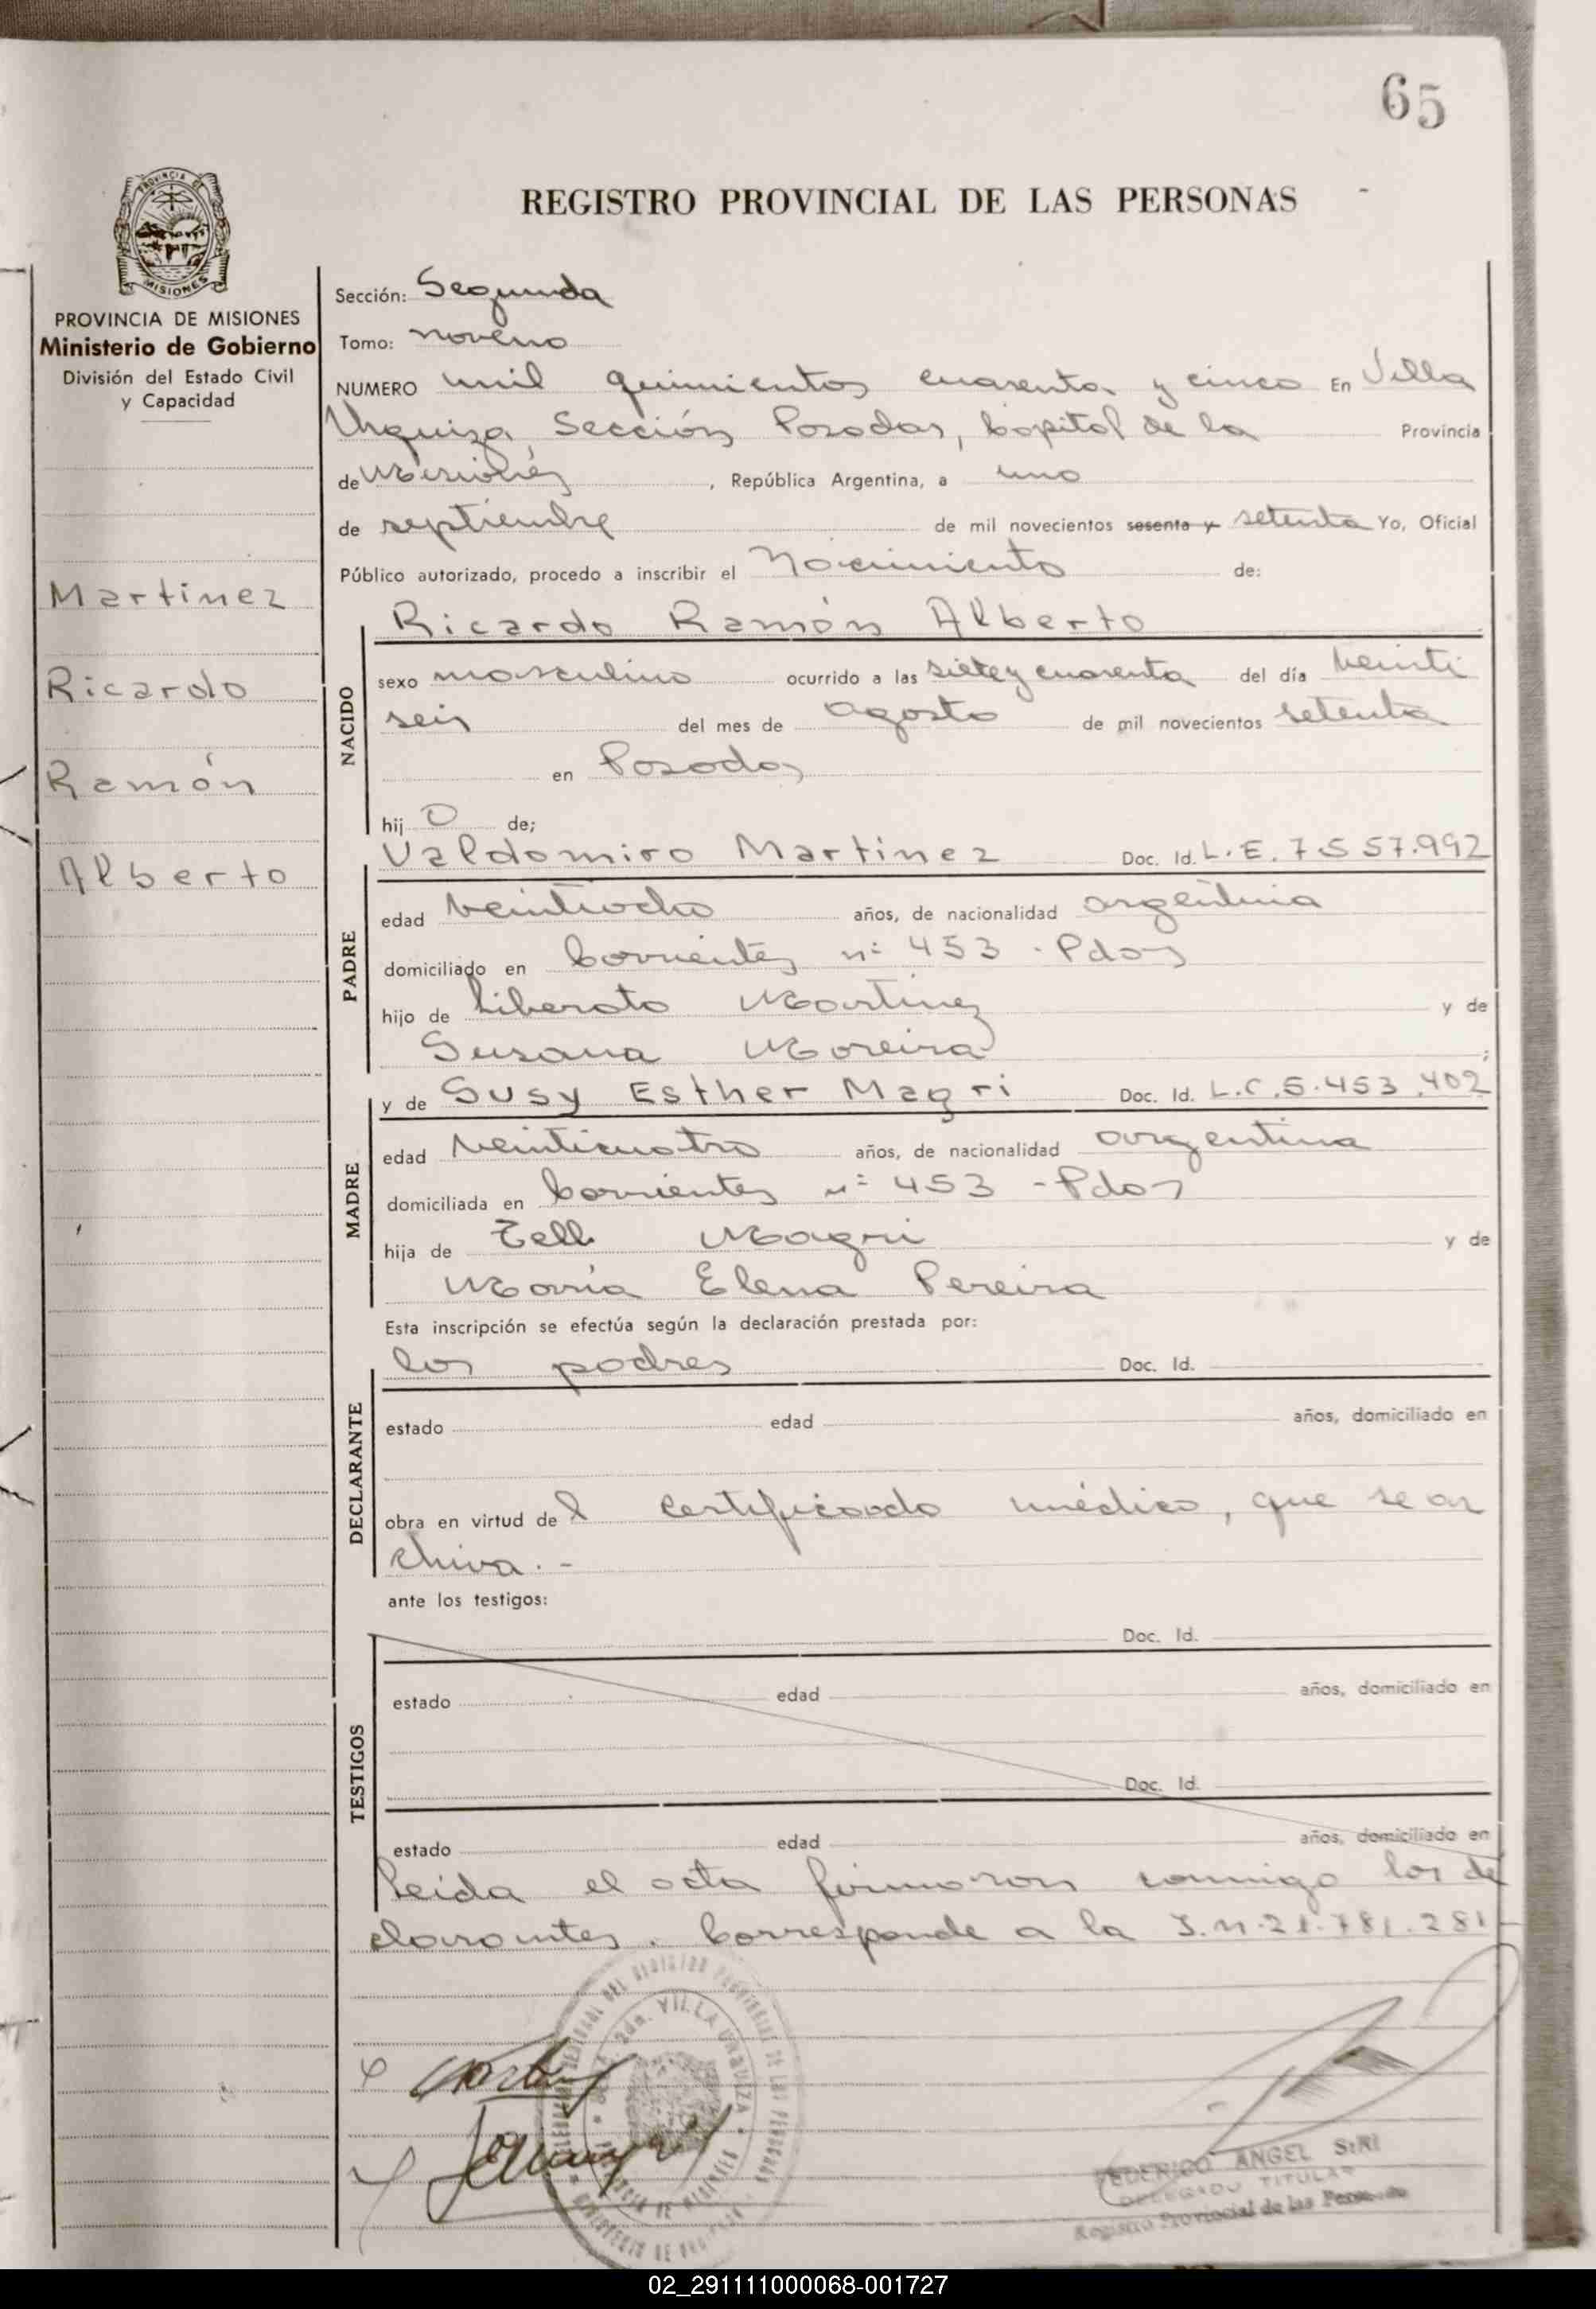 65
REGISTRO PROVINCIAL DE LAS PERSONAS
PROVINCIA DE
MISIONES
PROVINCIA DE MISIONES
Ministerio de Gobierno
División del Estado Civil
y Capacidad
Martinez
Ricardo
Ramón
Alberto
Sección: Segunda
Tomo: noveno
NUMERO mil quinientos cuarenta y cinco En Villa
Urquiza Sección Posadas, Capital de la Provincia
de Misiones, República Argentina, a uno
de septiembre de mil novecientos sesenta y setenta Yo, Oficial
Público autorizado, procedo a inscribir el Nacimiento de:
Ricardo Ramón Alberto
NACIDO
sexo masculino ocurrido a las siete y cuarenta del día veinti
seis del mes de agosto de mil novecientos setenta
en Posadas
hij o de;
Valdomiro Martinez Doc. Id. L.E. 7.557.992
PADRE
edad veintiocho años, de nacionalidad argentina
domiciliado en Corrientes nº 453 - Pdas
hijo de Liberato Martinez y de
Susana Moreira ;
y de Susy Esther Magri Doc. Id. L.C.5.453.402
MADRE
edad veinticuatro años, de nacionalidad argentina
domiciliada en Corrientes nº 453 - Pdas
hija de Magri y de
María Elena Pereira
Esta inscripción se efectúa según la declaración prestada por:
los padres Doc. Id.
DECLARANTE
estado edad años, domiciliado en
obra en virtud de l certificado médico, que se ar
chiva. -
ante los testigos:
Doc. Id.
TESTIGOS
estado edad años, domiciliado en
Doc. Id.
estado edad años, domiciliado en
Leída el acta firmaron conmigo los de
clarantes. Corresponde a la I.N.21.781.281-
2da. VILLA URQUIZA
FEDERICO ANGEL SIRI
DELEGADO TITULAR
Registro Provincial de las Personas
02_291111000068-001727